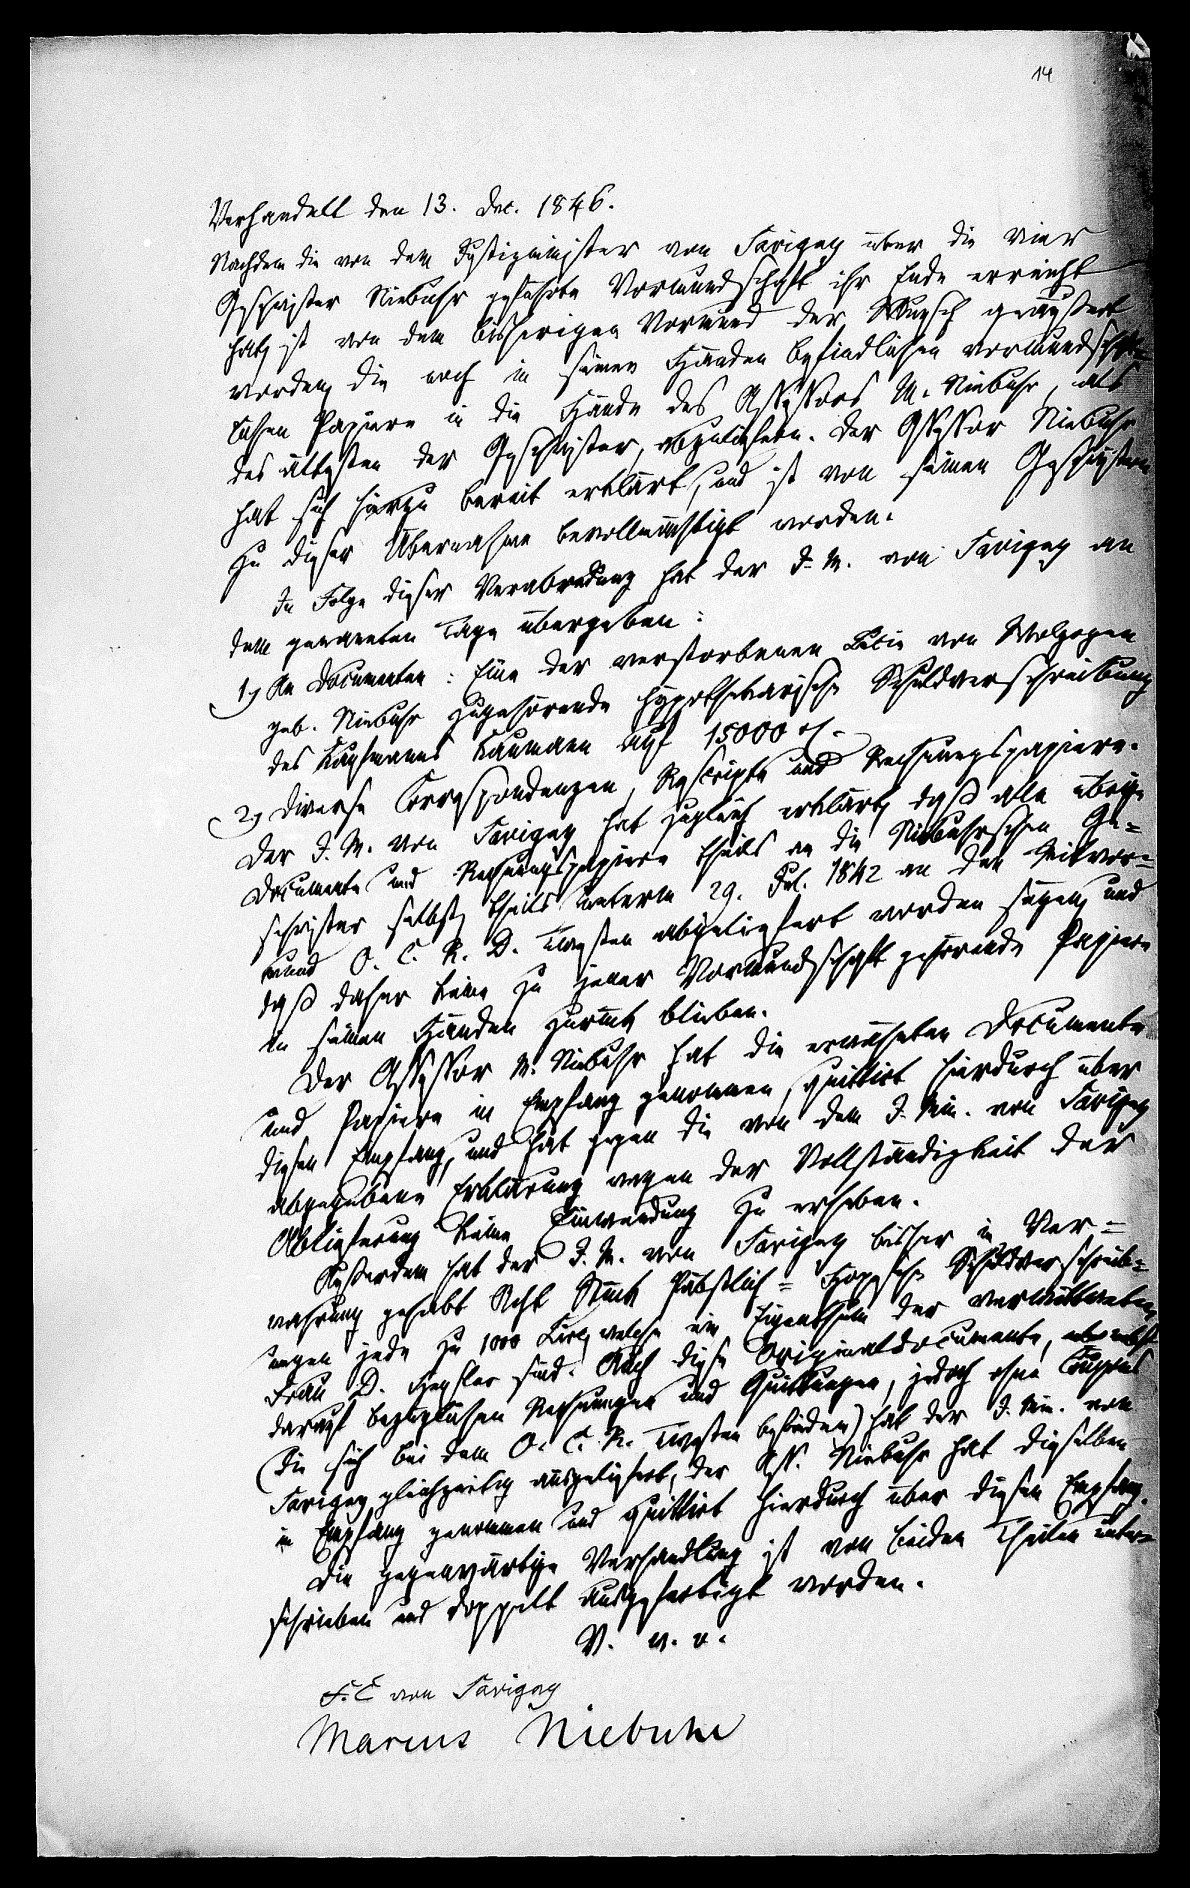 14
Verhandelt den 13. Dec. 1846.
Nachdem die von dem Justizminister von Savigny über die vier
Geschwister Niebuhr geführte Vormundschaft ihr Ende erreicht
hat, ist von dem bisherigen Vormund der Wunsch geäußert
worden, die noch in seinen Händen befindlichen vormundschaft=
lichen Papiere in die Hände des Assessors M. Niebuhr, als
des ältesten der Geschwister, abzuliefern. Der Assessor Niebuhr
hat sich hierzu bereit erklärt, und ist von seinen Geschwistern
zu dieser Übernahme bevollmächtigt worden.
In Folge dieser Verabredung hat der J. M. von Savigny an
dem genannten Tage übergeben:
1, An Documenten: Eine der verstorbenen Lucie von Wolzogen
geb. Niebuhr zugehörende hypothekarische Schuldverschreibung
des Kaufmanns Naumann auf 15000 rt.
2, Diverse Correspondenzen, Rescripte und Rechnungspapiere.
Der J. M. von Savigny hat zugleich erklärt, daß alle übrige
Documente und Rechnungspapiere theils an die Niebuhrschen Ge=
schwister selbst, theils unterm 29. Jul. 1842 an den Mitvor=
mund O. C. R. D. Twesten abgeliefert worden seyen, und
daß daher keine zu jener Vormundschaft gehörende Papiere
in seinen Händen zurück blieben.
Der Assessor M. Niebuhr hat die erwähnten Documente
und Papiere in Empfang genommen, quittirt hierdurch über
diesen Empfang, und hat gegen die von dem J. Min. von Savigny
abgegebene Erklärung wegen der Vollständigkeit der
Ablieferung keine Einwendung zu erheben.
Außerdem hat der J. M. von Savigny bisher in Ver=
wahrung gehabt Acht Stück Päbstlich= Schuldverschreib=
ungen jede zu 1000 welche ein Eigenthum der verwittweten
Frau D. Hensler sind. Auch diese Originaldocumente, nebst
darauf bezüglichen Rechnungen und Quittungen, jedoch ohne Coupons
(die sich bei dem O. C. R. Twesten befinden) hat der J. Min. von
Savigny gleichzeitig ausgeliefert, der Ass. Niebuhr hat dieselben
in Empfang genommen und quittirt hierdurch über diesen Empfang.
Die gegenwärtige Verhandlung ist von beiden Theilen unter=
schrieben und doppelt ausgefertigt worden.
V. w. o.
F. C von Savigny
Marcus Niebuhr